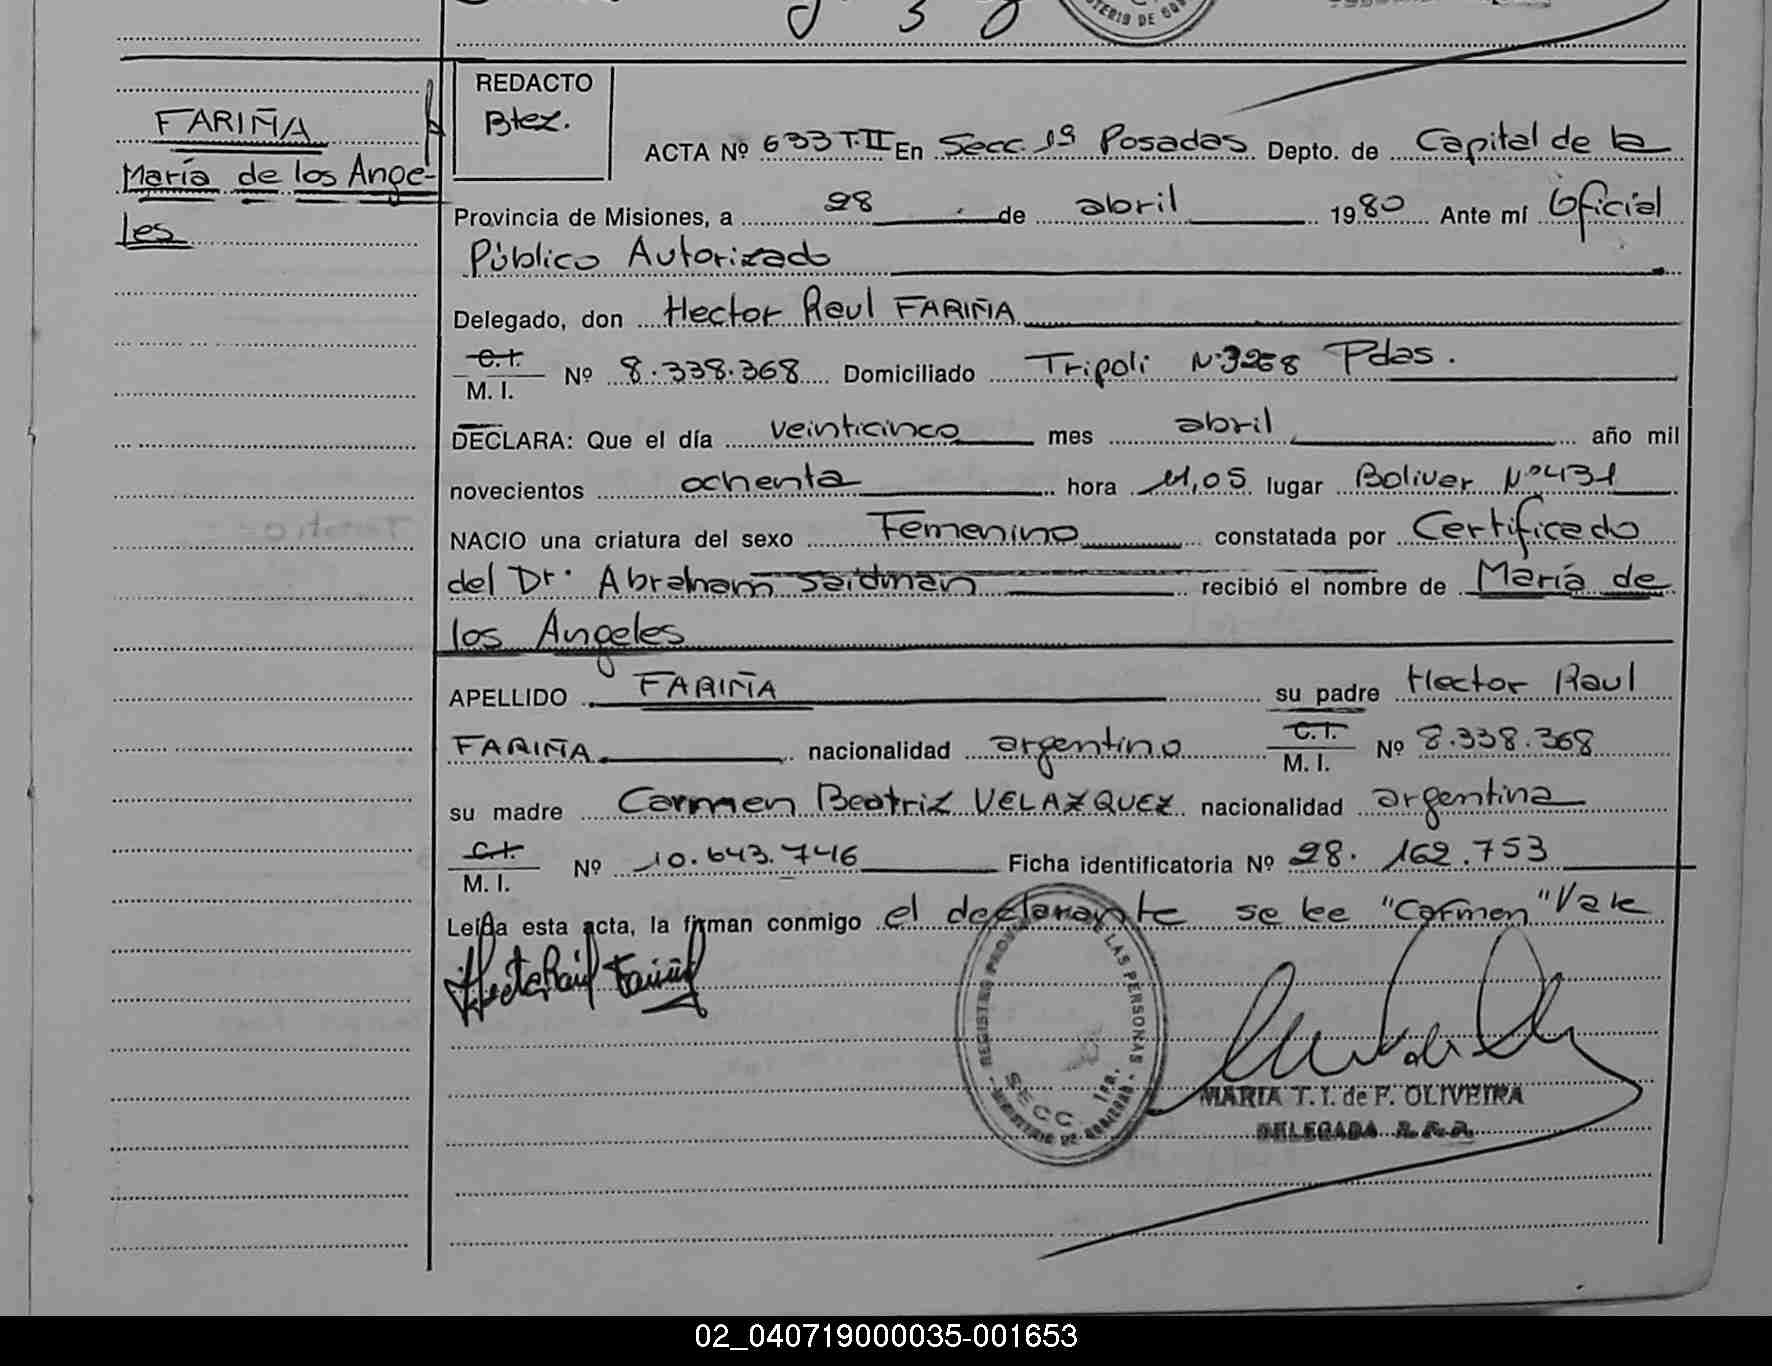 REDACTO
Btez.
FARIÑA
María de los Ange-
les
ACTA Nº 633 T.II En Secc. 1ª Posadas Depto. de Capital de la
Provincia de Misiones, a 28 de abril 1980 Ante mí Oficial
Público Autorizado
Delegado, don Hector Raul FARIÑA
C.I.
M. I. Nº 8.338.368 Domiciliado Tripoli Nº 3268 Pdas.
DECLARA: Que el día veinticinco mes abril año mil
novecientos ochenta hora 11,05 lugar Bolivar Nº 431
NACIO una criatura del sexo Femenino constatada por Certificado
del Dr. Abraham Saidman recibió el nombre de María de
los Angeles
APELLIDO FARIÑA su padre Hector Raul
FARIÑA nacionalidad argentino C.I. M. I. Nº 8.338.368
su madre Carmen Beatriz VELAZQUEZ nacionalidad argentina
C.I.
M. I. Nº 10.643.746 Ficha identificatoria Nº 28. 162.753
Leída esta acta, la firman conmigo el declarante se lee "Carmen" Vale
Hector Raúl Fariña
REGISTRO DE LAS PERSONAS
SECC. 1ra.
MINISTERIO DE GOBIERNO
MARIA T. I. de F. OLIVEIRA
DELEGADA R. P. P.
02_040719000035-001653